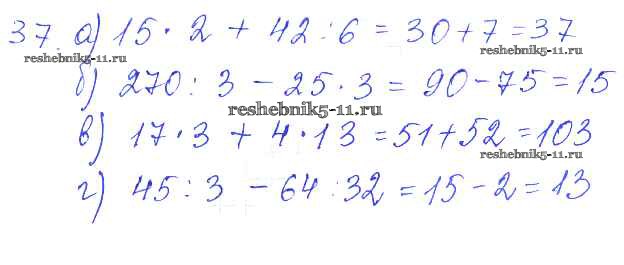 37. а) 15 · 2 + 42 : 6 = 30 + 7 = 37
reshebnik5-11.ru
reshebnik5-11.ru
б) 270 : 3 - 25 · 3 = 90 - 75 = 15
reshebnik5-11.ru
в) 17 · 3 + 4 · 13 = 51 + 52 = 103
reshebnik5-11.ru
г) 45 : 3 - 64 : 32 = 15 - 2 = 13